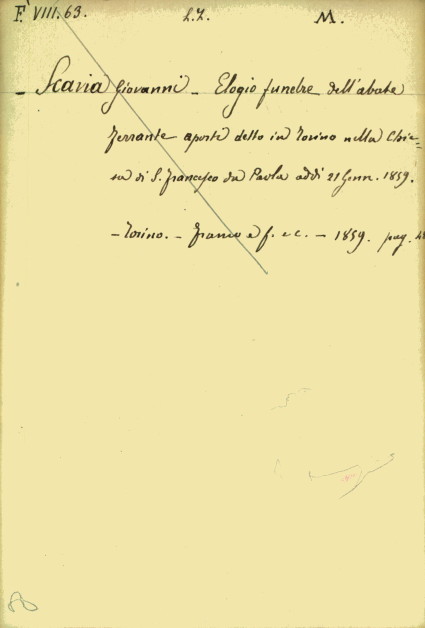 F. VIII. 63. L.Z. M.
- Scavia Giovanni - Elogio funebre dell'abate
Ferrante aporti detto in Torino nella Chie=
sa di S. Francesco da Paola addì 21 Genn. 1859.
- Torino. - Franco e f. e c. - 1859. pag.